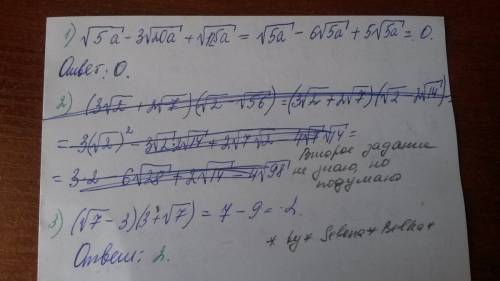 1) √5a - 3√20a + √125a = √5a - 6√5a + 5√5a = 0.
Ответ: 0.
2) (3√2 + 2√7)(√2 - √56) = (3√2 + 2√7)(√2 - 2√14) =
= 3(√2)² - 3√2·2√14 + 2√7√2 - 4√7√14 =
= 3·2 - 6√28 + 2√14 - 4√98
Второе задание
не знаю, но
подумаю
3) (√7 - 3)(3 + √7) = 7 - 9 = -2.
Ответ: 2.
* by * Sebena * Belka *